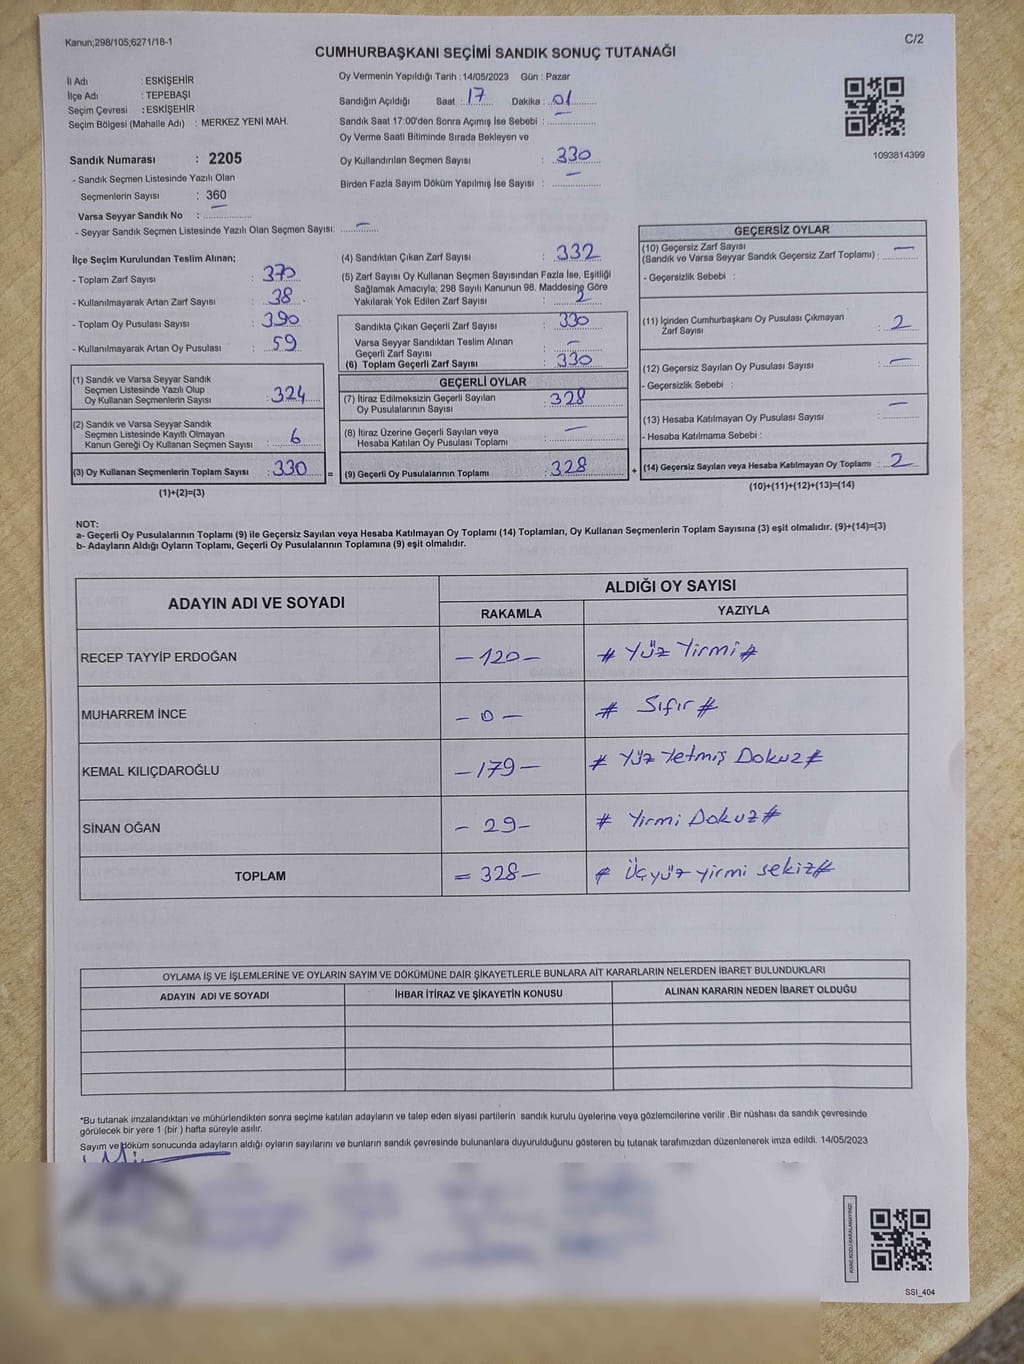 Kanun;298/105;6271/18-1
C/2
CUMHURBAŞKANI SEÇİMİ SANDIK SONUÇ TUTANAĞI
İl Adı : ESKİŞEHİR
İlçe Adı : TEPEBAŞI
Seçim Çevresi : ESKİŞEHİR
Seçim Bölgesi (Mahalle Adı) : MERKEZ YENİ MAH.
Sandık Numarası : 2205
- Sandık Seçmen Listesinde Yazılı Olan
Seçmenlerin Sayısı : 360
Varsa Seyyar Sandık No : –
- Seyyar Sandık Seçmen Listesinde Yazılı Olan Seçmen Sayısı: –
Oy Vermenin Yapıldığı Tarih : 14/05/2023 Gün : Pazar
Sandığın Açıldığı Saat : 17 Dakika : 01
Sandık Saat 17:00'den Sonra Açımış İse Sebebi : –
Oy Verme Saati Bitiminde Sırada Bekleyen ve
Oy Kullandırılan Seçmen Sayısı : 330
Birden Fazla Sayım Döküm Yapılmış İse Sayısı : –
1093814399
İlçe Seçim Kurulundan Teslim Alınan;
- Toplam Zarf Sayısı : 370
- Kullanılmayarak Artan Zarf Sayısı : 38
- Toplam Oy Pusulası Sayısı : 390
- Kullanılmayarak Artan Oy Pusulası : 59
(1) Sandık ve Varsa Seyyar Sandık
Seçmen Listesinde Yazılı Olup
Oy Kullanan Seçmenlerin Sayısı : 324
(2) Sandık ve Varsa Seyyar Sandık
Seçmen Listesinde Kayıtlı Olmayan
Kanun Gereği Oy Kullanan Seçmen Sayısı : 6
(3) Oy Kullanan Seçmenlerin Toplam Sayısı : 330
(1)+(2)=(3)
(4) Sandıktan Çıkan Zarf Sayısı : 332
(5) Zarf Sayısı Oy Kullanan Seçmen Sayısından Fazla İse, Eşitliği
Sağlamak Amacıyla; 298 Sayılı Kanunun 98. Maddesine Göre
Yakılarak Yok Edilen Zarf Sayısı : 2
Sandıkta Çıkan Geçerli Zarf Sayısı : 330
Varsa Seyyar Sandıktan Teslim Alınan
Geçerli Zarf Sayısı : –
(6) Toplam Geçerli Zarf Sayısı : 330
GEÇERLİ OYLAR
(7) İtiraz Edilmeksizin Geçerli Sayılan
Oy Pusulalarının Sayısı : 328
(8) İtiraz Üzerine Geçerli Sayılan veya
Hesaba Katılan Oy Pusulası Toplamı : –
= (9) Geçerli Oy Pusulalarının Toplamı : 328
GEÇERSİZ OYLAR
(10) Geçersiz Zarf Sayısı
(Sandık ve Varsa Seyyar Sandık Geçersiz Zarf Toplamı) : –
- Geçersizlik Sebebi :
(11) İçinden Cumhurbaşkanı Oy Pusulası Çıkmayan
Zarf Sayısı : 2
(12) Geçersiz Sayılan Oy Pusulası Sayısı : –
- Geçersizlik Sebebi :
(13) Hesaba Katılmayan Oy Pusulası Sayısı : –
- Hesaba Katılmama Sebebi :
+ (14) Geçersiz Sayılan veya Hesaba Katılmayan Oy Toplamı : 2
(10)+(11)+(12)+(13)=(14)
NOT:
a- Geçerli Oy Pusulalarının Toplamı (9) ile Geçersiz Sayılan veya Hesaba Katılmayan Oy Toplamı (14) Toplamları, Oy Kullanan Seçmenlerin Toplam Sayısına (3) eşit olmalıdır. (9)+(14)=(3)
b- Adayların Aldığı Oyların Toplamı, Geçerli Oy Pusulalarının Toplamına (9) eşit olmalıdır.
ADAYIN ADI VE SOYADI
ALDIĞI OY SAYISI
RAKAMLA YAZIYLA
RECEP TAYYİP ERDOĞAN – 120 – # Yüz Yirmi #
MUHARREM İNCE – 0 – # Sıfır #
KEMAL KILIÇDAROĞLU – 179 – # Yüz Yetmiş Dokuz #
SİNAN OĞAN – 29 – # Yirmi Dokuz #
TOPLAM = 328 – # Üçyüz yirmi sekiz #
OYLAMA İŞ VE İŞLEMLERİNE VE OYLARIN SAYIM VE DÖKÜMÜNE DAİR ŞİKAYETLERLE BUNLARA AİT KARARLARIN NELERDEN İBARET BULUNDUKLARI
ADAYIN ADI VE SOYADI İHBAR İTİRAZ VE ŞİKAYETİN KONUSU ALINAN KARARIN NEDEN İBARET OLDUĞU
*Bu tutanak imzalandıktan ve mühürlendikten sonra seçime katılan adayların ve talep eden siyasi partilerin sandık kurulu üyelerine veya gözlemcilerine verilir .Bir nüshası da sandık çevresinde
görülecek bir yere 1 (bir ) hafta süreyle asılır.
Sayım ve döküm sonucunda adayların aldığı oyların sayılarını ve bunların sandık çevresinde bulunanlara duyurulduğunu gösteren bu tutanak tarafımızdan düzenlenerek imza edildi. 14/05/2023
KARE KODU KARALAMAYINIZ!
SSI_404